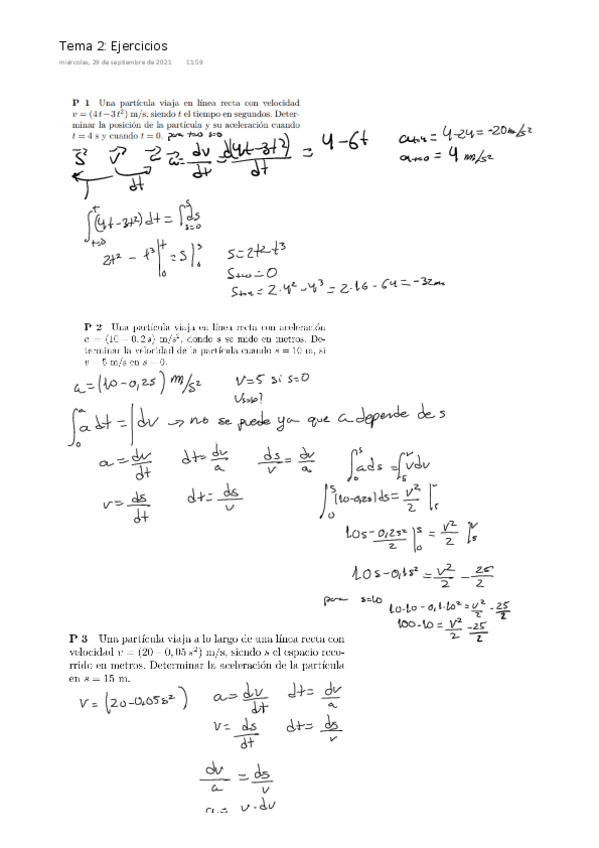 Tema 2: Ejercicios
miércoles, 29 de septiembre de 2021 11:59
P 1 Una partícula viaja en línea recta con velocidad
v = (4t−3t²) m/s, siendo t el tiempo en segundos. Deter-
minar la posición de la partícula y su aceleración cuando
t = 4 s y cuando t = 0. para t=0 s=0
a = dv/dt = d(4t-3t²)/dt = 4-6t
a t=4 = 4-24 = -20 m/s²
a t=0 = 4 m/s²
∫(4t-3t²)dt = ∫ds
2t² - t³ |₀ᵗ = s |₀ˢ
s = 2t²-t³
s t=0 = 0
s t=4 = 2·4² - 4³ = 2·16 - 64 = -32m
P 2 Una partícula viaja en línea recta con aceleración
a = (10 − 0,2 s) m/s², donde s se mide en metros. De-
terminar la velocidad de la partícula cuando s = 10 m, si
v = 5 m/s en s = 0.
a = (10-0,2s) m/s² v=5 si s=0
∫a dt = ∫dv → no se puede ya que a depende de s
a = dv/dt dt = dv/a ds/v = dv/a ∫a ds = ∫v dv
v = ds/dt dt = ds/v ∫(10-0,2s)ds = v²/2
10s - 0,2s²/2 |₀ˢ = v²/2 |₅ᵛ
10s - 0,1s² = v²/2 - 25/2
para s=10
10·10 - 0,1·10² = v²/2 - 25/2
100-10 = v²/2 - 25/2
P 3 Una partícula viaja a lo largo de una línea recta con
velocidad v = (20 − 0,05 s²) m/s, siendo s el espacio reco-
rrido en metros. Determinar la aceleración de la partícula
en s = 15 m.
v = (20-0,05s²) a = dv/dt dt = dv/a
v = ds/dt dt = ds/v
dv/a = ds/v
v·dv